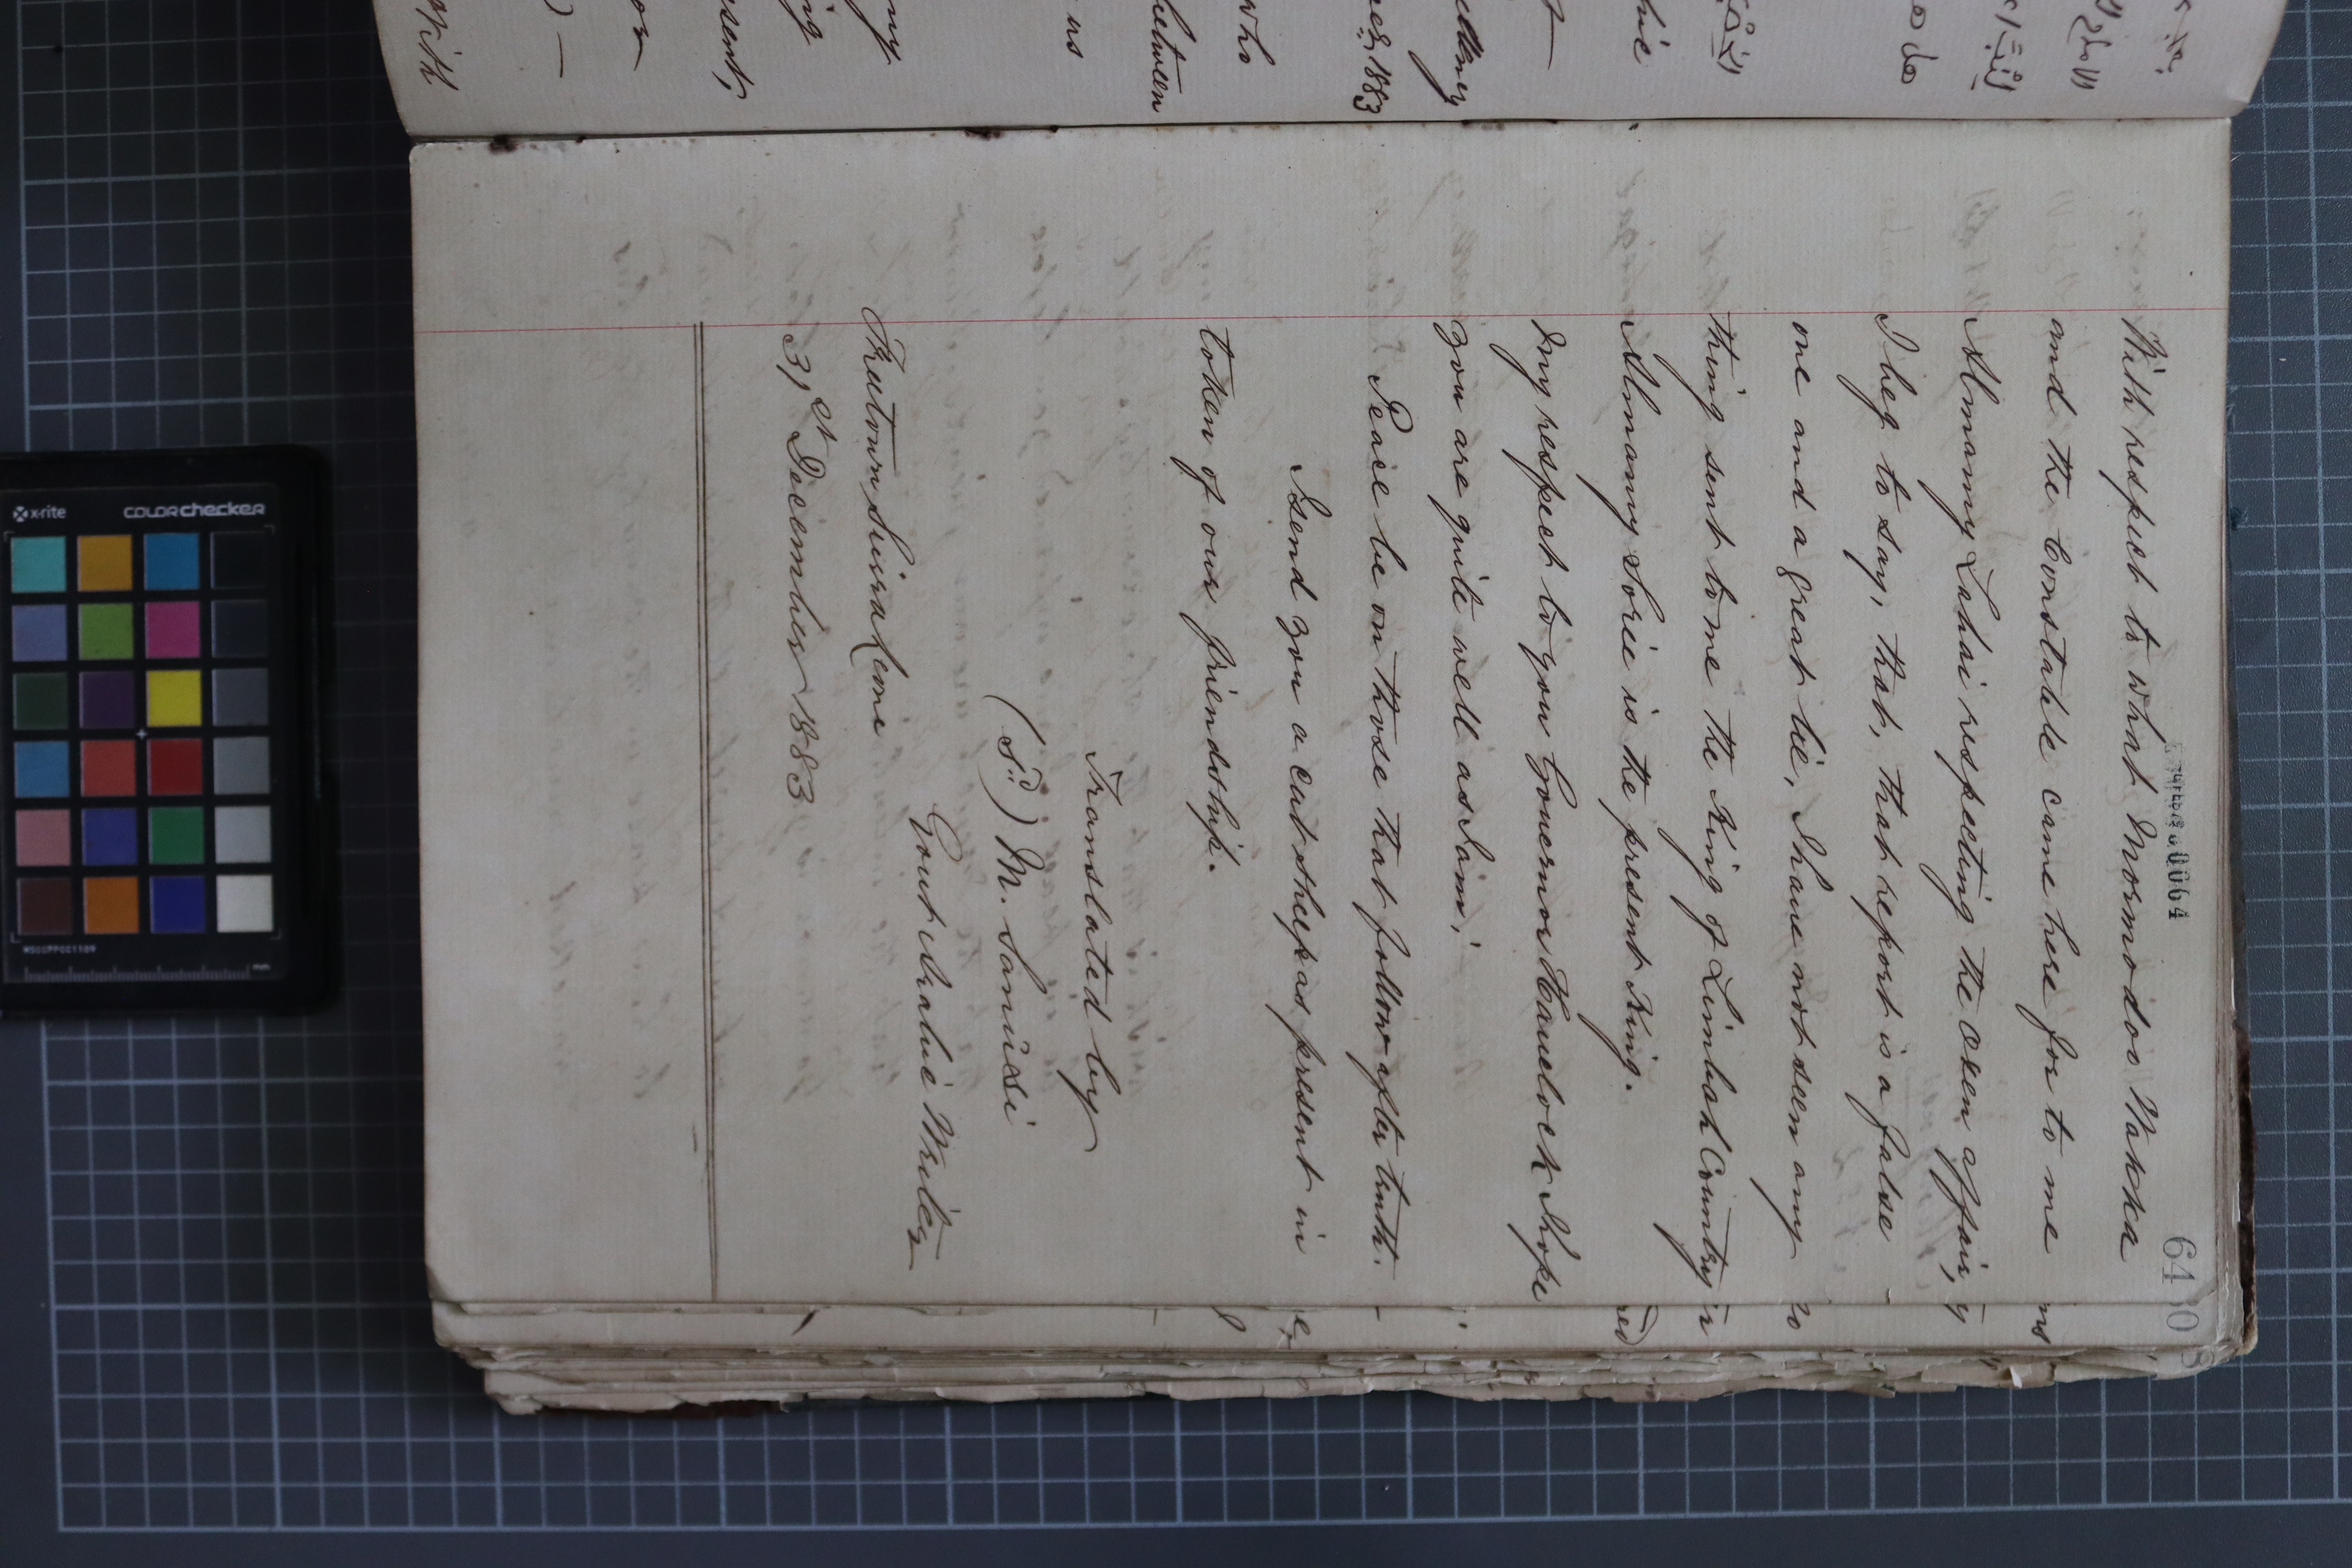 64
With respect to what Mormodoo Wakka
and the Constable came here for to me
Almamy Lahai respecting the oxen affair,
I beg to say, that, that report is a false
one and a great lie, I have not seen any
thing sent to me the King of Limbah Country
Almamy Sorie is the present King.
My respect to you Governor Havelock I hope
you are quite well as I am;
Peace be on those that follow after truth.
I send you a cut sheep as present in
token of our friendship.
Translated by
(Sd) M. Sanusi
Govt Arabic Writer
Freetown Sierra Leone
31st December 1883
between
who
1883
us
my
x-rite
colorchecker